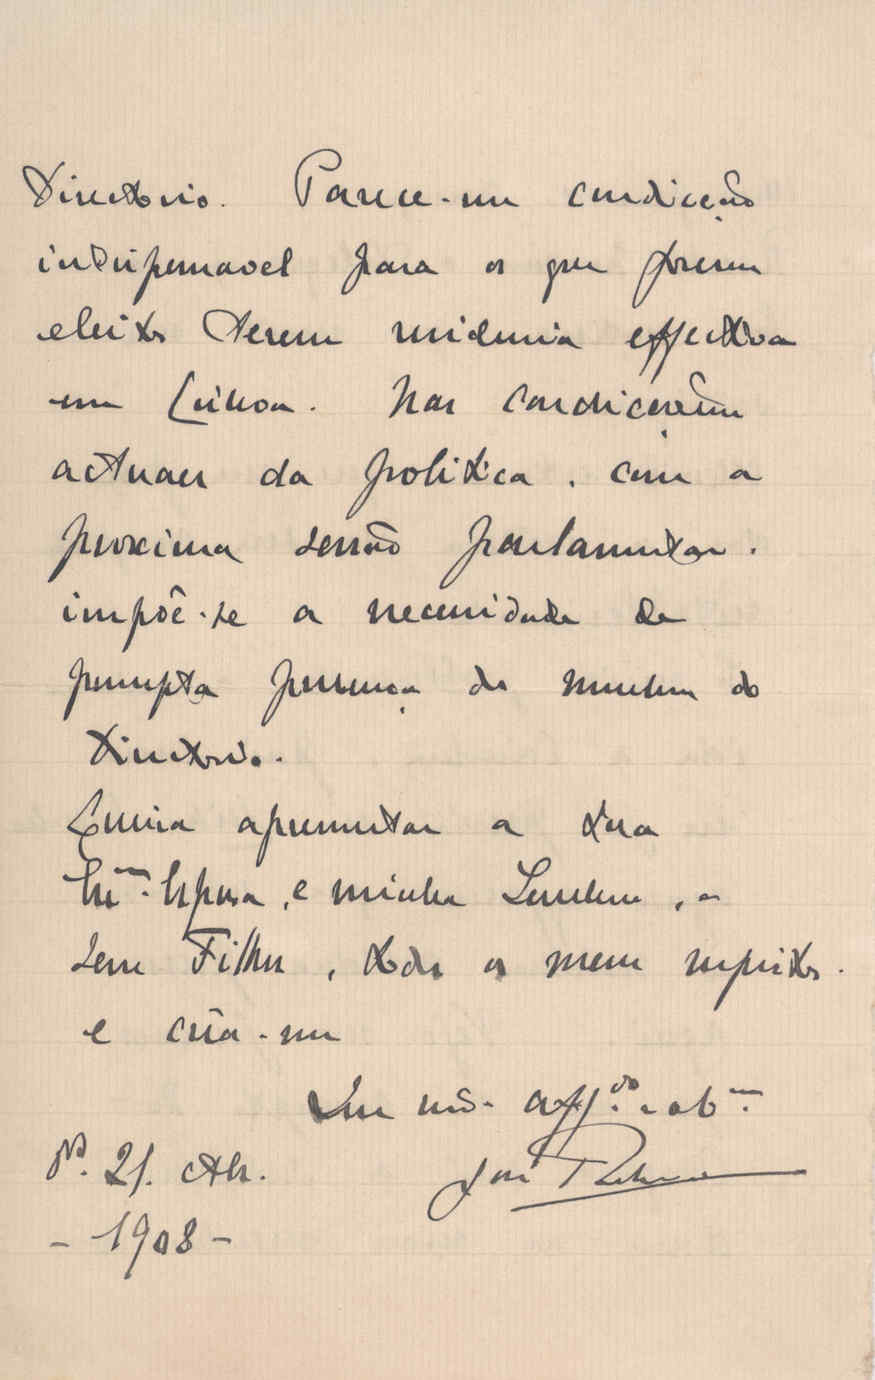 Directorio. Parece-me condicção
indispensavel para os que forem
eleitos terem residencia effectiva
em Lisboa. Nas condicções
actuaes da politica, com a
proxima sessão parlamentar.
impõe-se a necessidade da
prompta presença dos membros do
Directorio.
Queira apresentar a sua
Exmª. Esposa, e minha Senhora, e
seus Filhos, todos os meus respeitos.
e crêa-me
affdo. e obmo.
Pto. 21. Abr. José Relvas
- 1908 -